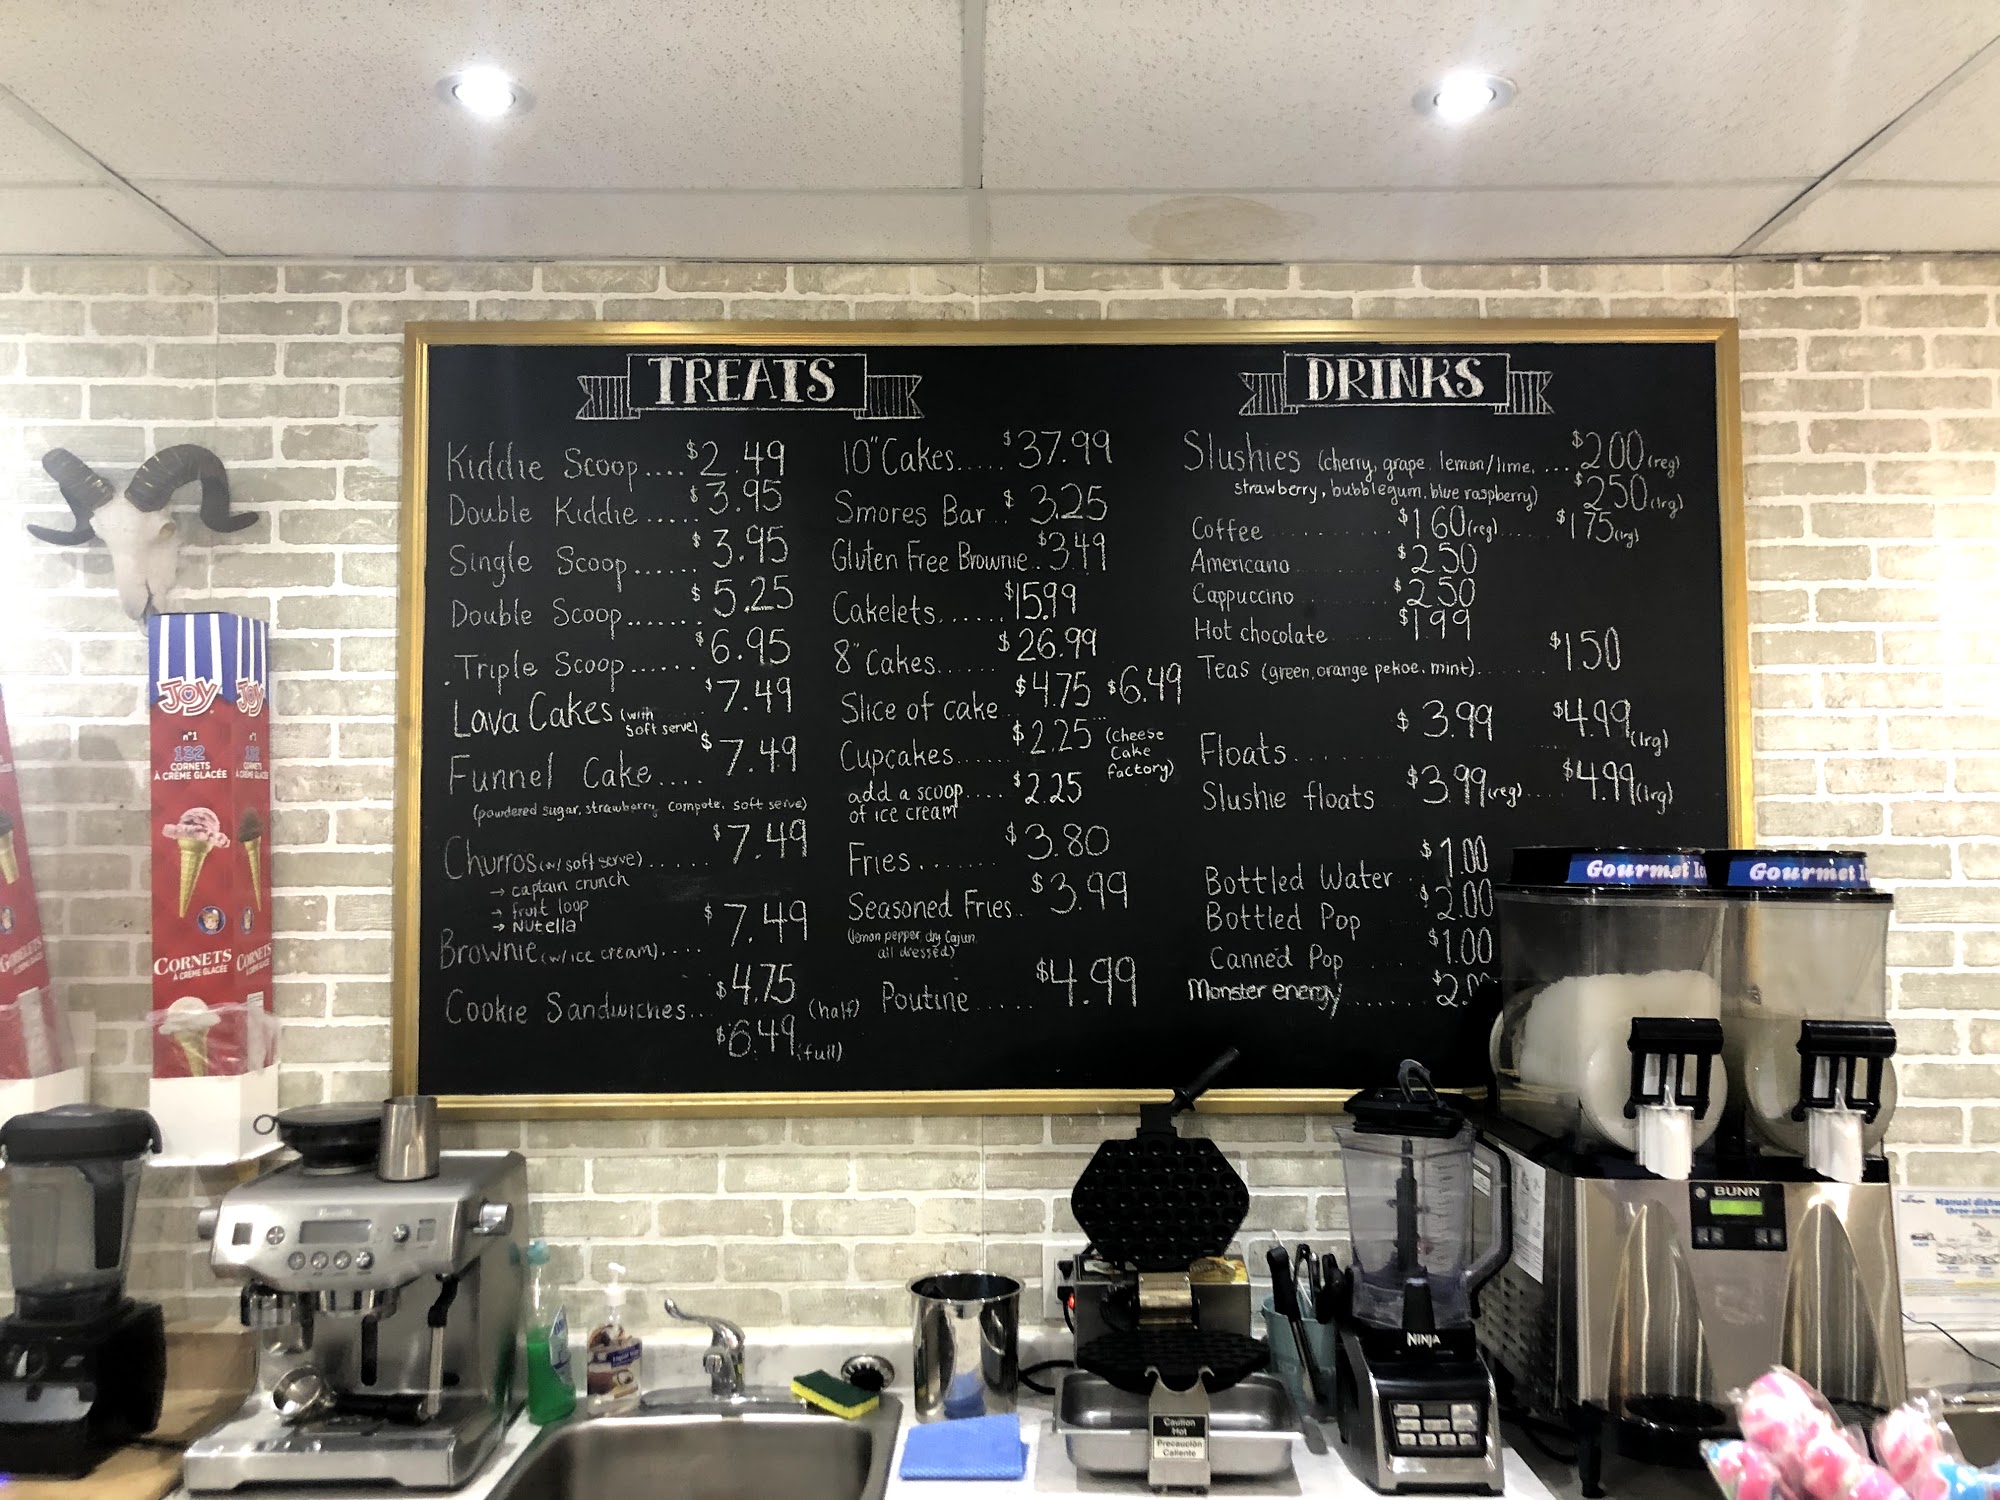 TREATS
Kiddie Scoop.... $2.49
Double Kiddie..... $3.95
Single Scoop...... $3.95
Double Scoop....... $5.25
Triple Scoop...... $6.95
Lava Cakes (with soft serve) $7.49
Funnel Cake.... $7.49
(powdered sugar, strawberry, compote, soft serve)
Churros (w/ soft serve)...... $7.49
→ captain crunch
→ fruit loop
→ Nutella
Brownie (w/ ice cream).... $7.49
Cookie Sandwiches... $4.75 (half)
$6.49 (full)
10" Cakes..... $37.99
Smores Bar.. $3.25
Gluten Free Brownie.. $3.49
Cakelets...... $15.99
8" Cakes...... $26.99
Slice of cake $4.75 $6.49
(Cheese
Cake
factory)
Cupcakes...... $2.25
add a scoop.... $2.25
of ice cream
Fries....... $3.80
Seasoned Fries.. $3.99
(lemon pepper, dry Cajun,
all dressed)
Poutine..... $4.99
DRINKS
Slushies (cherry, grape, lemon/lime, .... $2.00 (reg)
strawberry, bubblegum, blue raspberry) $2.50 (lrg)
Coffee........... $1.60 (reg)..... $1.75 (lrg)
Americano $2.50
Cappuccino $2.50
Hot chocolate $1.99
Teas (green, orange pekoe, mint)....... $1.50
Floats........ $3.99 $4.99 (lrg)
Slushie floats $3.99 (reg).... $4.99 (lrg)
Bottled Water $1.00
Bottled Pop $2.00
Canned Pop $1.00
Monster energy....... $2.
JOY
JOY
n°1
132
CORNETS
À CRÈME GLACÉE
CORNETS
À CRÈME GLACÉE
CORNETS
Gourmet Ice
Gourmet
BUNN
NINJA
Caution
Hot
Precaución
Caliente